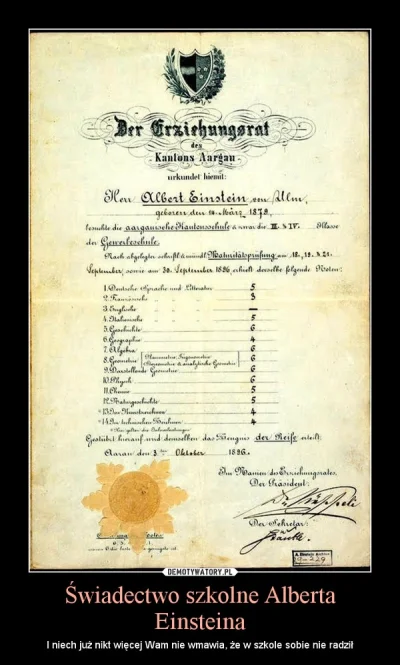 Der Erziehungsrat
des
Kantons Aargau
urkundet hiemit:
Herr Albert Einstein von Ulm,
geboren den 14. März 1879,
besuchte die aargauische Kantonsschule & zwar die III. & IV. Klasse
der Gewerbeschule.
Nach abgelegter schriftl. & mündl. Maturitätsprüfung am 18., 19. & 21.
September, sowie am 30. September 1896, erhielt derselbe folgende Noten:
1. Deutsche Sprache und Litteratur 5
2. Französische 3
3. Englische —
4. Italienische 5
5. Geschichte 6
6. Geographie 4
7. Algebra 6
8. Geometrie (Planimetrie, Trigonometrie Stereometrie & analytische Geometrie) 6
9. Darstellende Geometrie 6
10. Physik 6
11. Chemie 5
12. Naturgeschichte 5
*13. Im Kunstzeichnen 4
*14. Im technischen Zeichnen 4
* Hier gelten die Jahresleistungen.
Gestützt hierauf wird demselben das Zeugnis der Reife erteilt.
Aarau den 3ten Oktober 1896.
Im Namen des Erziehungsrates,
Der Präsident:
Der Sekretär:
A. Einstein Archive
29
DEMOTYWATORY.PL
Świadectwo szkolne Alberta
Einsteina
I niech już nikt więcej Wam nie wmawia, że w szkole sobie nie radził